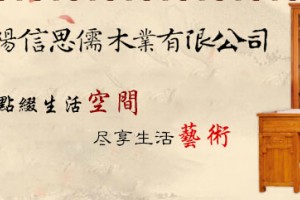 陽信思儒木業有限公司
點綴生活空間
尽享生活藝術